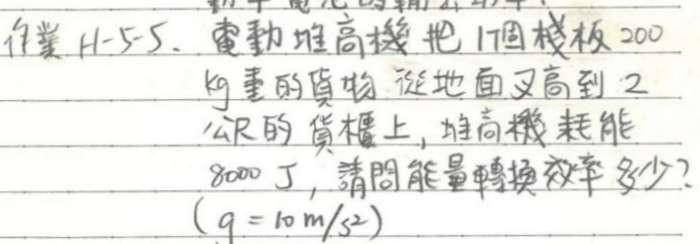 作業 H-5-5. 電動堆高機把1個棧板200
kg重的貨物從地面叉高到2
公尺的貨櫃上,堆高機耗能
8000 J,請問能量轉換效率多少?
(g=10m/s²)